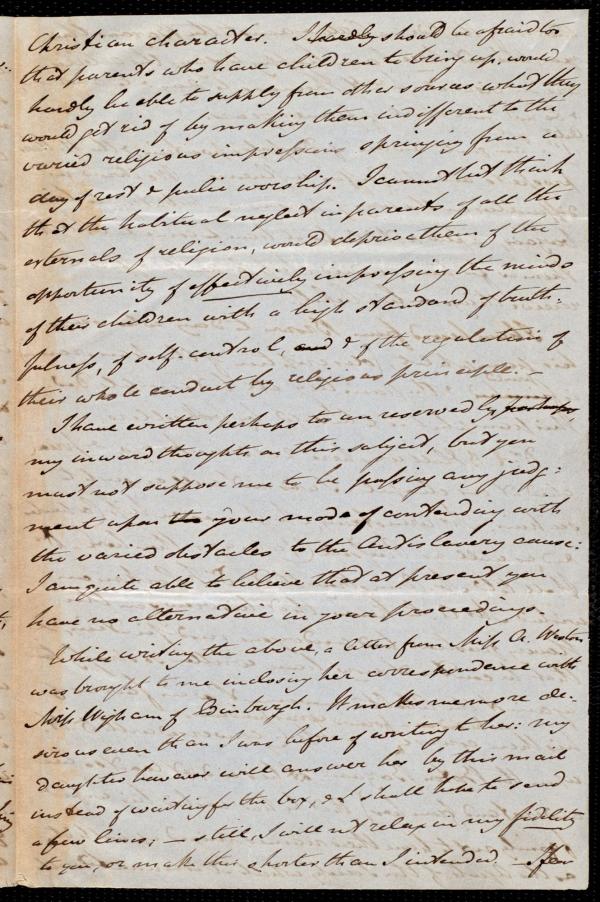 Christian character. I hardly should be afraid too
that parents who have children to bring up, would
hardly be able to supply from other sources what they
would get rid of by making them indifferent to the
varied religious impressions springing from a
day of rest & public worship. I cannot but think
that the habitual neglect in parents of all the
externals of religion, would deprive them of the
opportunity of effectively impressing the minds
of their children with a high standard of truth-
fulness, of self-control, and & of the regulation of
their whole conduct by religious principle. -
I have written perhaps too unreservedly, perhaps,
my inward thoughts on this subject, but you
must not suppose me to be passing any judg:
ment upon the your mode of contending with
the varied obstacles to the Antislavery cause:
I am quite able to believe that at present you
have no alternative in your proceedings.
While writing the above, a letter from Miss A. Weston
was brought to me inclosing her correspondence with
Miss Wigham of Edinburgh. It makes me more de-
sirous even than I was before of writing to her: my
daughter however will answer her by this mail
instead of waiting for the box, & I shall hope to send
a few lines; - still, I will not relax in my fidelity
to you, or make this shorter than I intended. - I fear